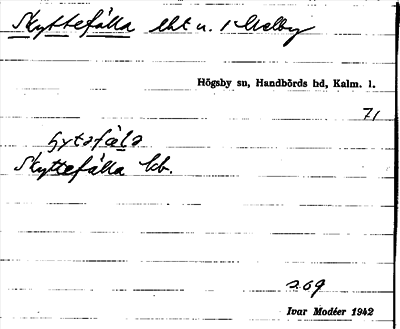 Skyttefälla lht u. 1 Melby
Högsby sn, Handbörds hd, Kalm. l.
71
Skyttefälla kb.
s. 69
Ivar Modéer 1942